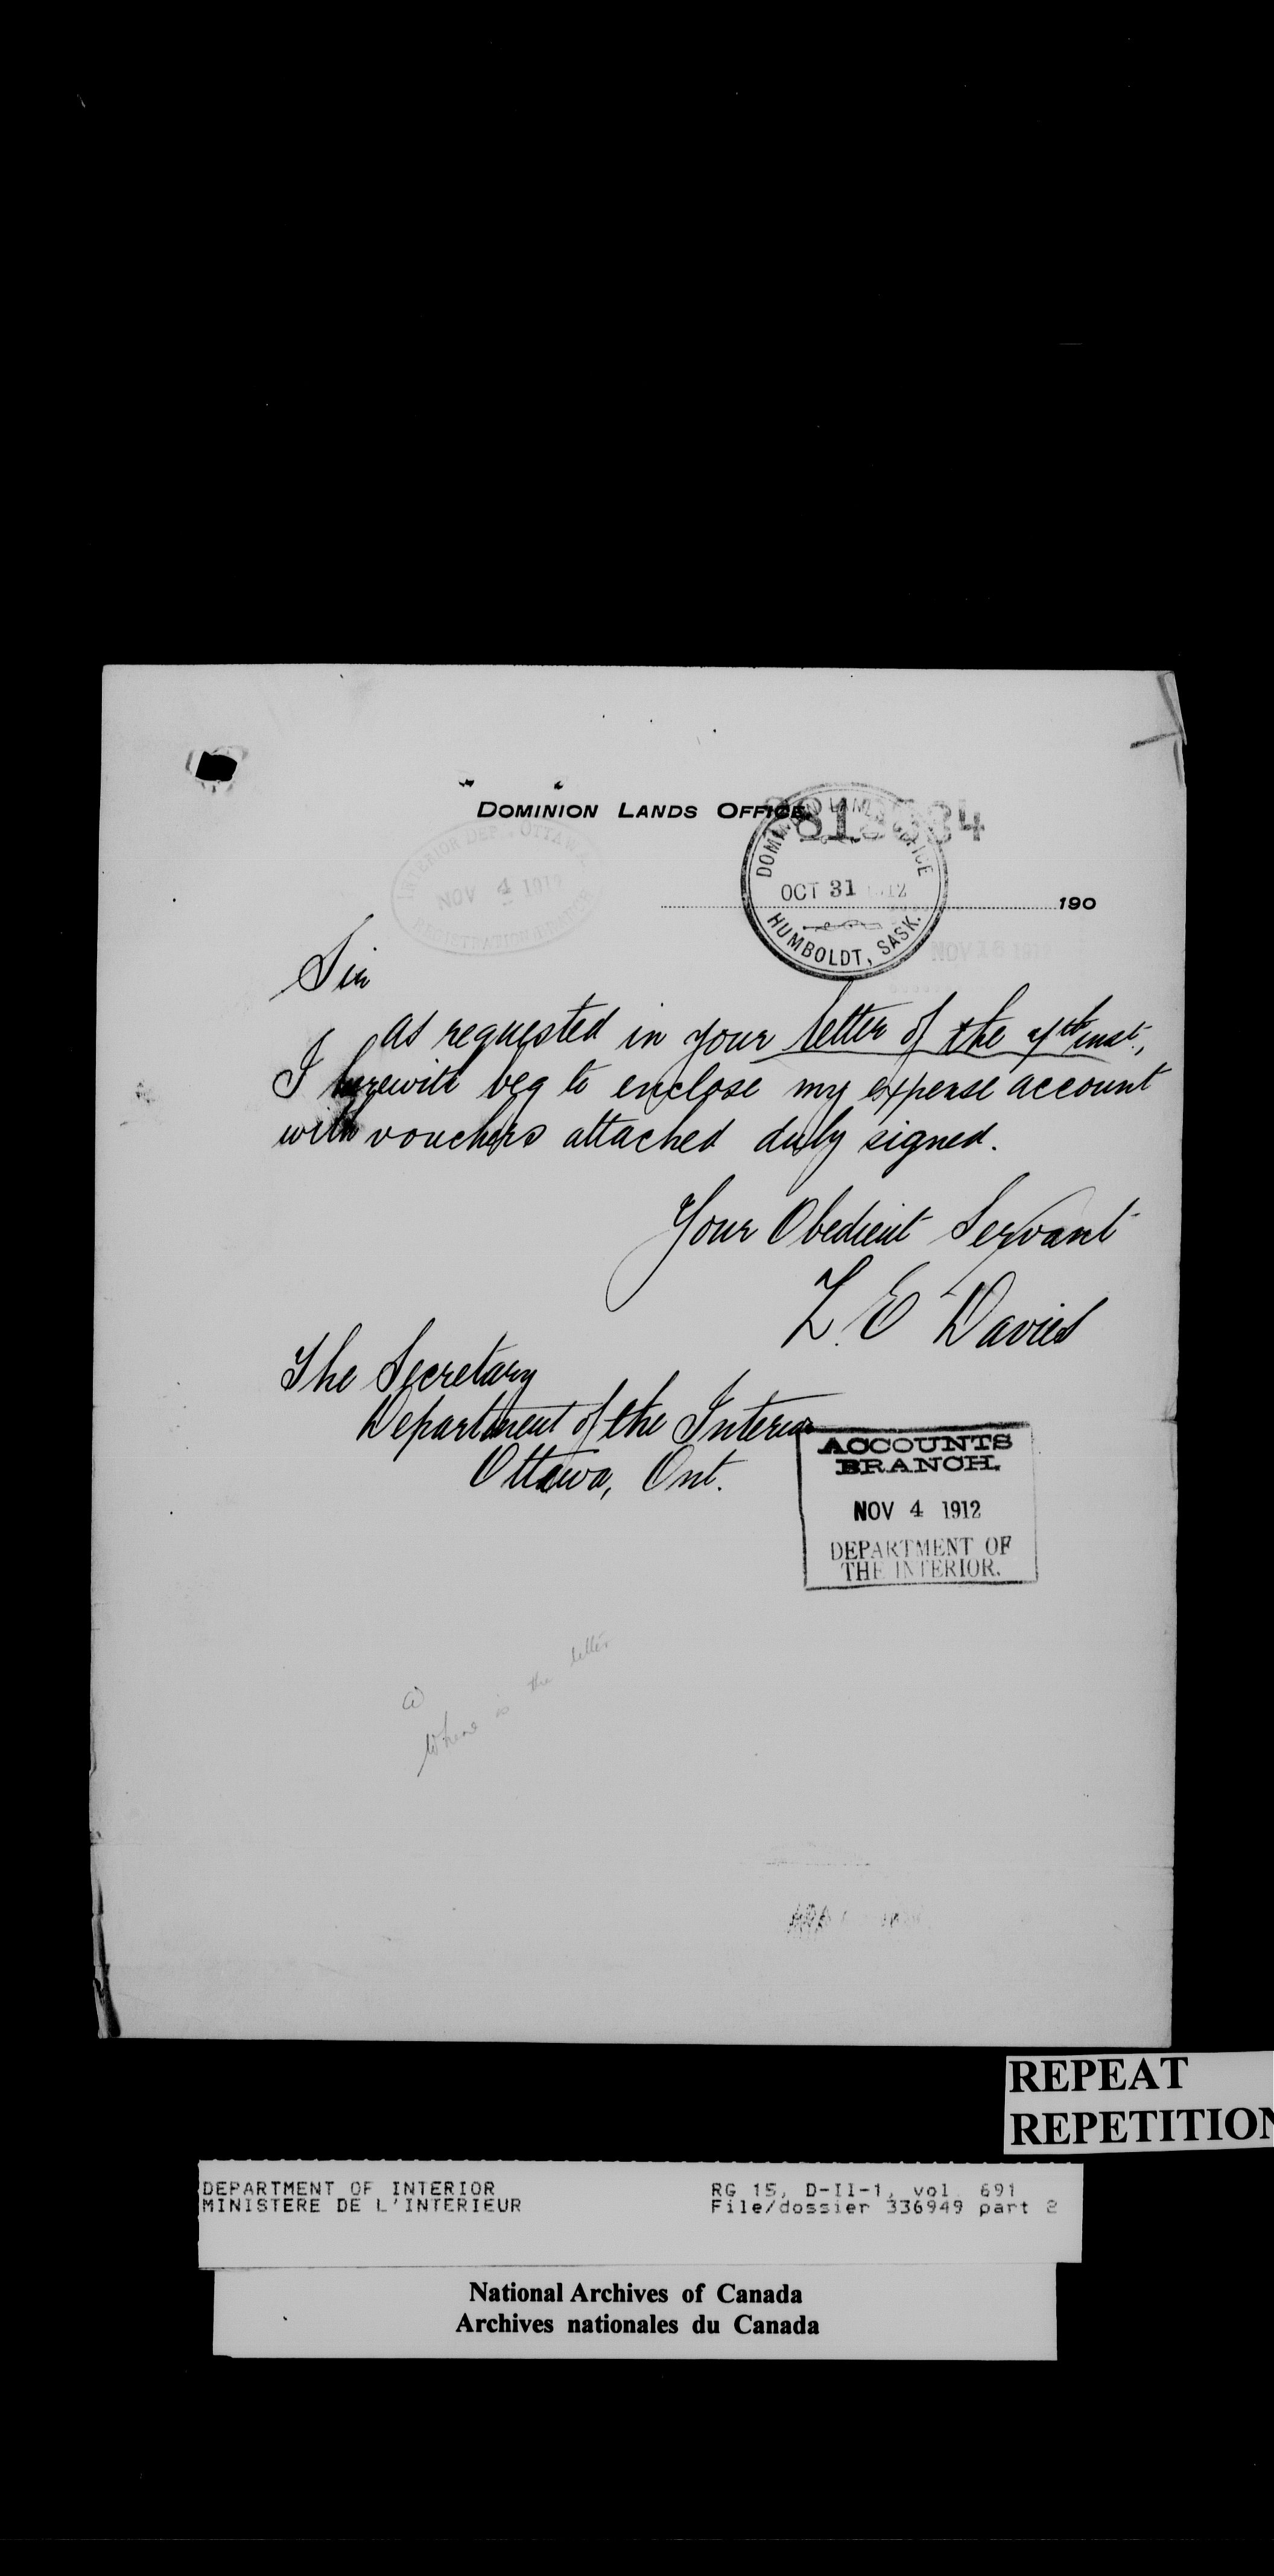 DOMINION LANDS OFFICE
INTERIOR DEPT OTTAWA
NOV 4 1912
REGISTRATION BRANCH
DOMINION LANDS OFFICE
OCT 31 1912
HUMBOLDT, SASK.
190
NOV 15 191
Sir
As requested in your letter of the 7th inst.,
I herewith beg to enclose my expense account
with vouchers attached duly signed.
Your Obedient Servant
L. E Davies
The Secretary
Department of the Interior
Ottawa, Ont.
ACCOUNTS
BRANCH.
NOV 4 1912
DEPARTMENT OF
THE INTERIOR.
Where is the letter
REPEAT
REPETITION
DEPARTMENT OF INTERIOR
MINISTERE DE L'INTERIEUR
RG 15, D-II-1, vol. 691
File/dossier 336949 part 2
National Archives of Canada
Archives nationales du Canada